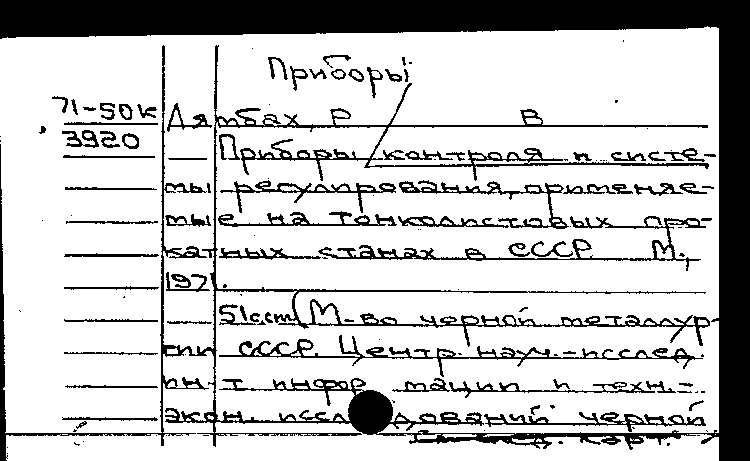 Приборы
71-50к
3920
Лямбах, Р В
Приборы контроля и систе-
мы регулирования, применяе-
мые на тонколистовых про-
катных станах в СССР М.,
1971.
51с. см (М-во черной металлур-
гии СССР. Центр. науч.-исслед.
ин-т инфор мации и техн.-
экон. иссл дований черной
карт.